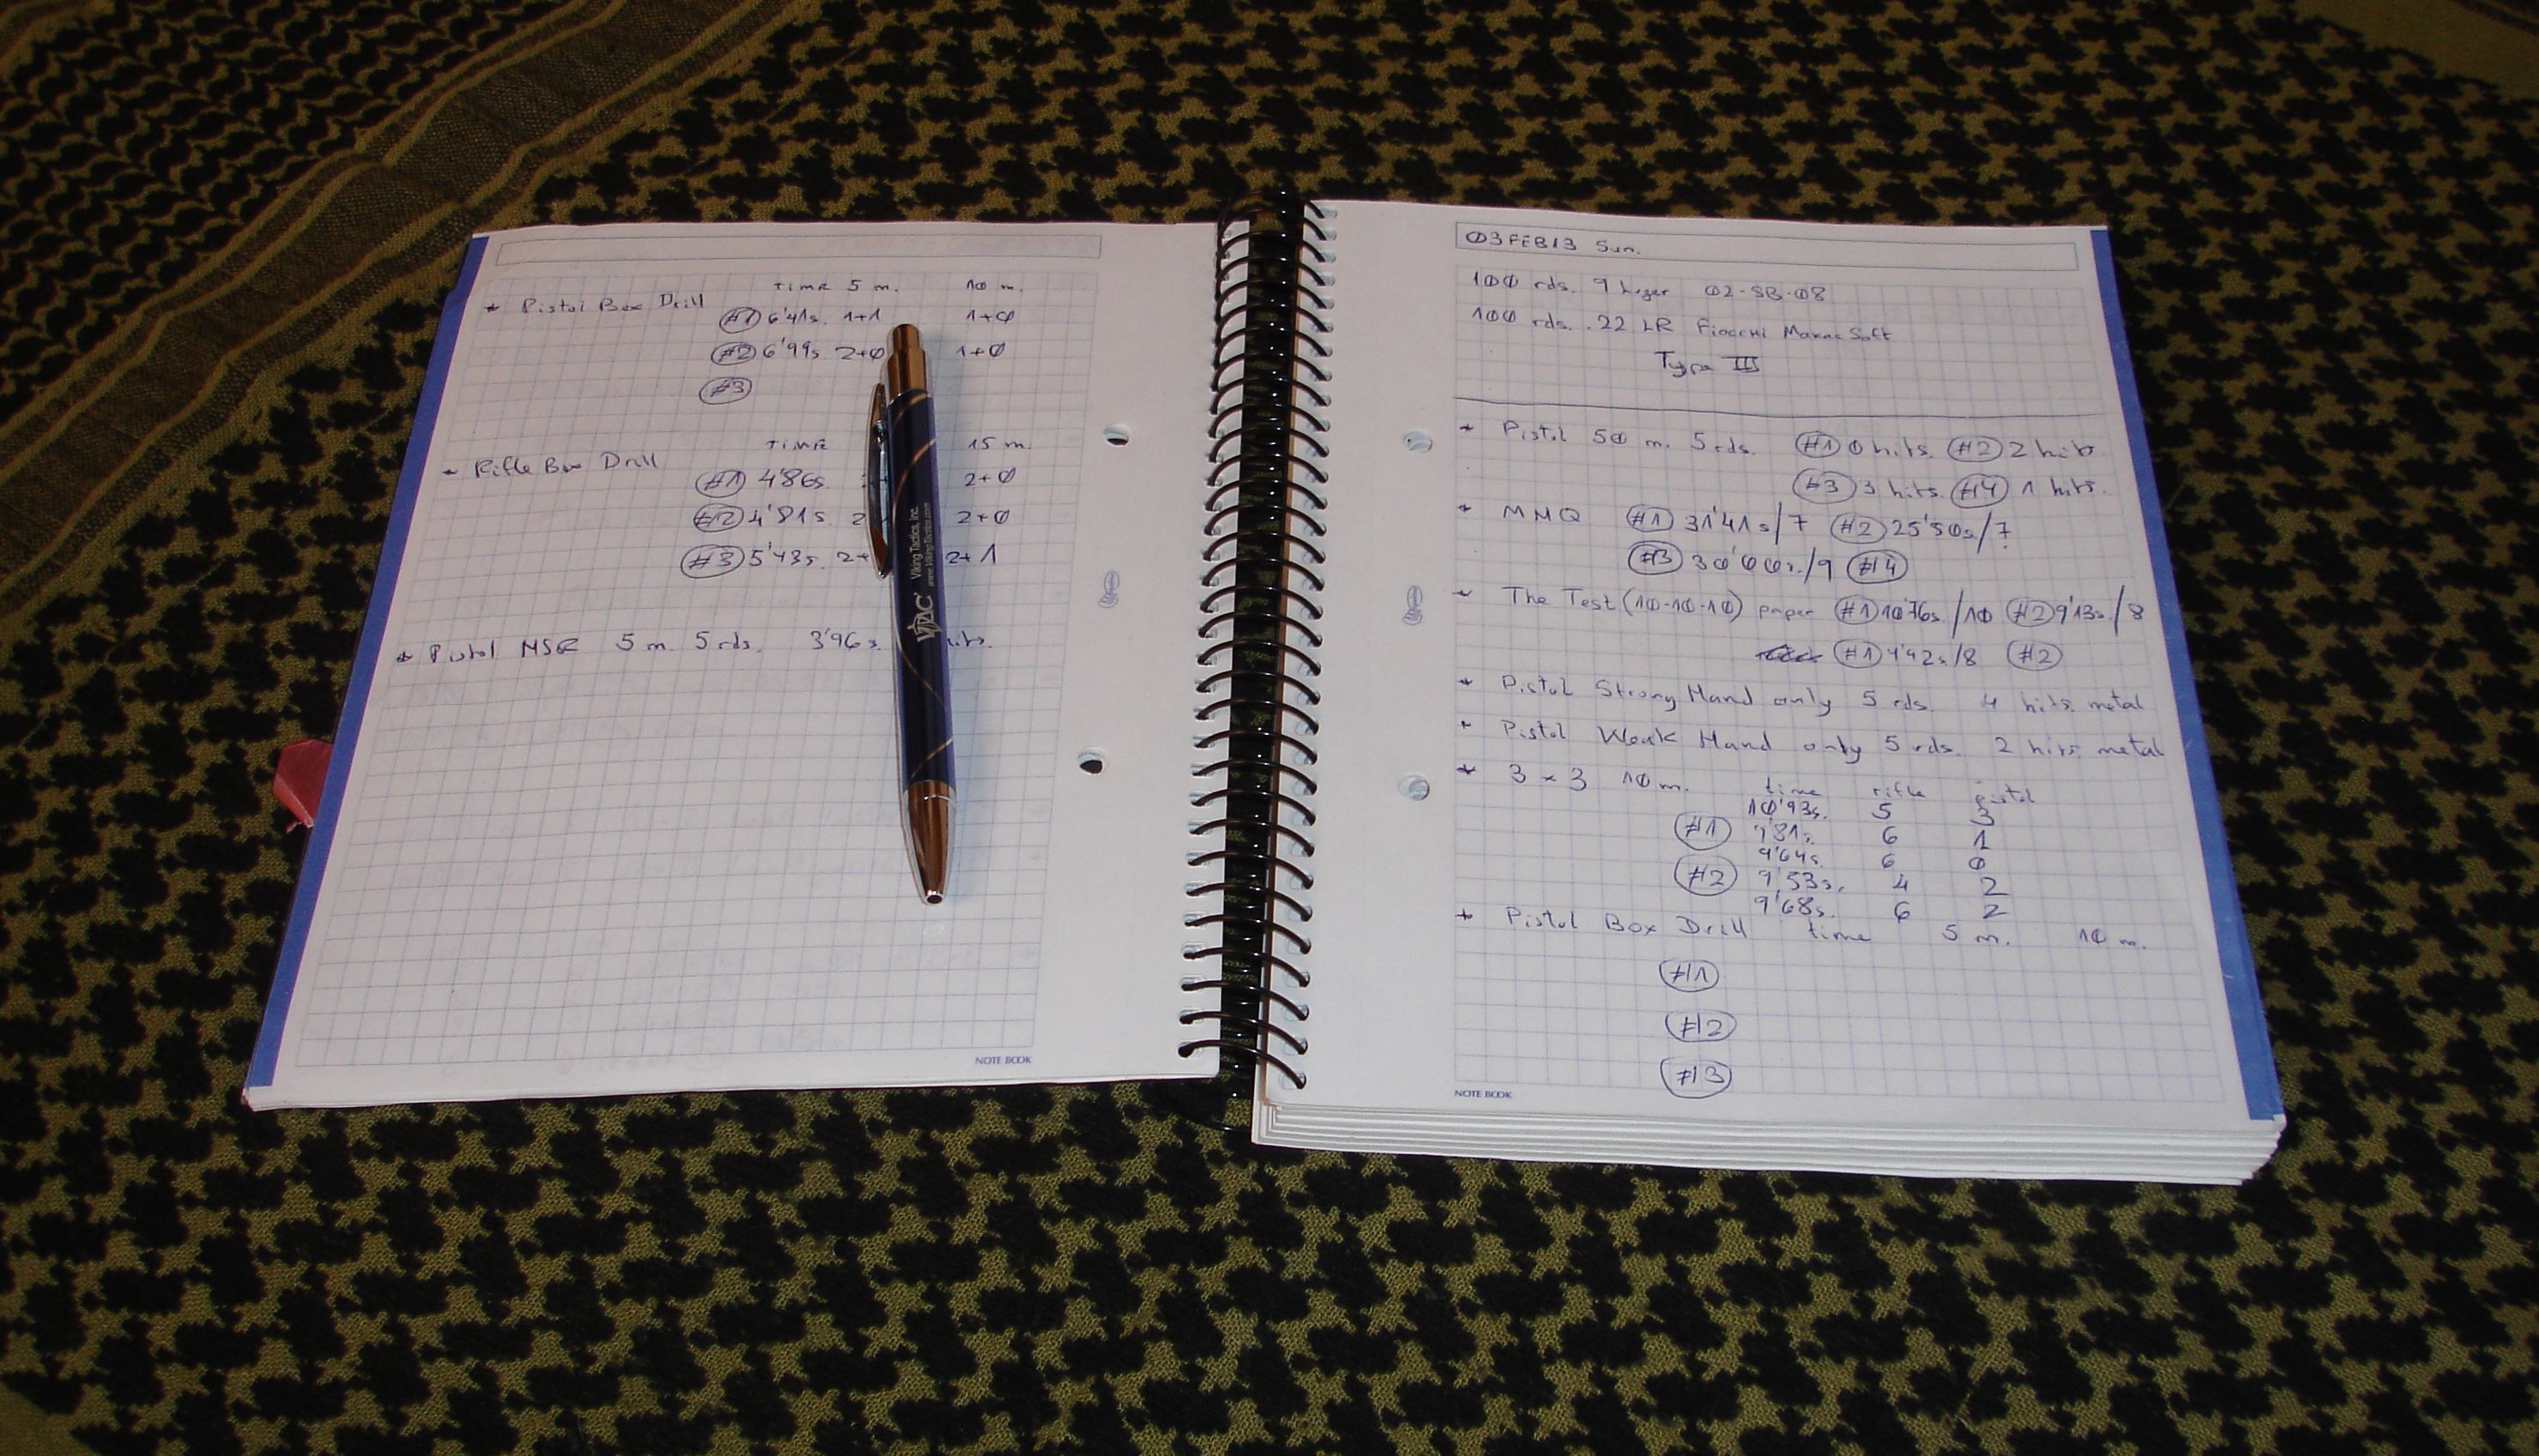 TIME 5 m. 10 m.
* Pistol Box Drill
#1 6'41s. 1+1 1+0
#2 6'99s 2+0 1+0
#3
TIME 15 m.
* Rifle Box Drill
#1 4'86s. 2+0
#2 4'81s 2 2+0
#3 5'43s. 2+ 2+1
* Pistol MSR 5 m. 5 rds. 3'96s. hits.
VTAC
Viking Tactics, Inc.
www.VikingTactics.com
NOTE BOOK
03FEB13 Sun.
100 rds. 9 Luger 02-SB-08
100 rds. .22 LR Fiocchi
Type III
* Pistol 50 m. 5 rds. #1 0 hits. #2 2 hits
#3 3 hits. #4 1 hits.
* MMQ #1 31'41s/7 #2 25'50s/7
#3 /9 #4
* The Test (10-10-10) paper #1 10'76s./10 #2 9'13s./8
#1 /8 #2
* Pistol Strong Hand only 5 rds. 4 hits metal
* Pistol Weak Hand only 5 rds. 2 hits metal
* 3 x 3 10 m. time rifle pistol
10'93s. 5 3
#1 9'81s 6 1
9'64s. 6 0
#2 9'53s. 4 2
9'68s. 6 2
* Pistol Box Drill time 5 m. 10 m.
#1
#2
#3
NOTE BOOK